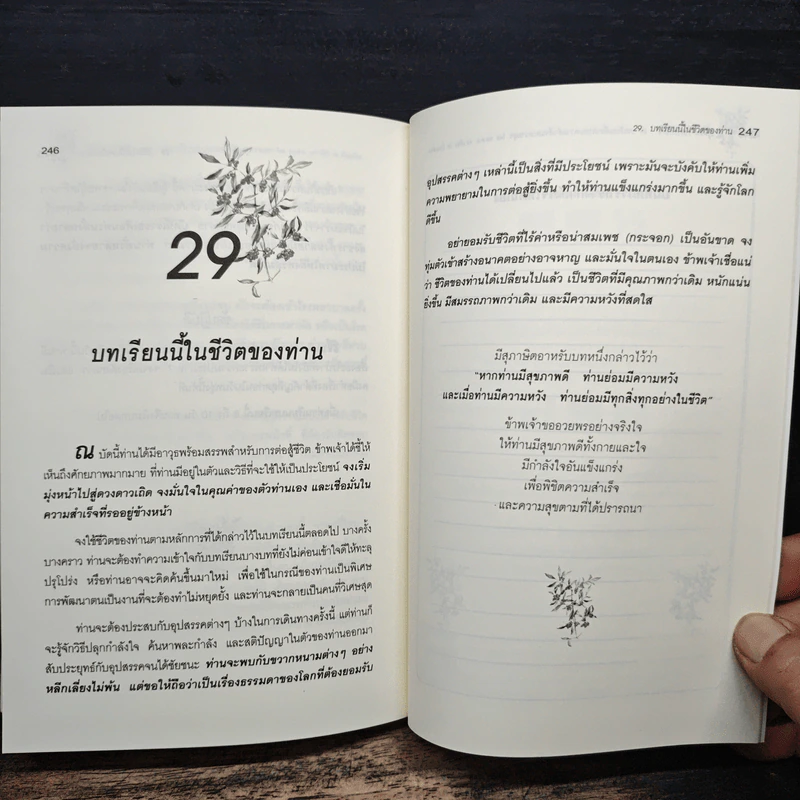 246
29
บทเรียนนี้ในชีวิตของท่าน
ณ บัดนี้ท่านได้มีอาวุธพร้อมสรรพสำหรับการต่อสู้ชีวิต ข้าพเจ้าได้ชี้ให้
เห็นถึงศักยภาพมากมาย ที่ท่านมีอยู่ในตัวและวิธีที่จะใช้ให้เป็นประโยชน์ จงเริ่ม
มุ่งหน้าไปสู่ดวงดาวเถิด จงมั่นใจในคุณค่าของตัวท่านเอง และเชื่อมั่นใน
ความสำเร็จที่รออยู่ข้างหน้า
จงใช้ชีวิตของท่านตามหลักการที่ได้กล่าวไว้ในบทเรียนนี้ตลอดไป บางครั้ง
บางคราว ท่านจะต้องทำความเข้าใจกับบทเรียนบางบทที่ยังไม่ค่อยเข้าใจดีให้ทะลุ
ปรุโปร่ง หรือท่านอาจจะคิดค้นขึ้นมาใหม่ เพื่อใช้ในกรณีของท่านเป็นพิเศษ
การพัฒนาตนเป็นงานที่จะต้องทำไม่หยุดยั้ง และท่านจะกลายเป็นคนที่วิเศษสุด
ท่านจะต้องประสบกับอุปสรรคต่างๆ บ้างในการเดินทางครั้งนี้ แต่ท่านก็
จะรู้จักวิธีปลุกกำลังใจ ค้นหาพละกำลัง และสติปัญญาในตัวของท่านออกมา
สัประยุทธ์กับอุปสรรคจนได้ชัยชนะ ท่านจะพบกับขวากหนามต่างๆ อย่าง
หลีกเลี่ยงไม่พ้น แต่ขอให้ถือว่าเป็นเรื่องธรรมดาของโลกที่ต้องยอมรับ
29 บทเรียนนี้ในชีวิตของท่าน 247
อุปสรรคต่างๆ เหล่านี้เป็นสิ่งที่มีประโยชน์ เพราะมันจะบังคับให้ท่านเพิ่ม
ความพยายามในการต่อสู้ยิ่งขึ้น ทำให้ท่านแข็งแกร่งมากขึ้น และรู้จักโลก
ดีขึ้น
อย่ายอมรับชีวิตที่ไร้ค่าหรือน่าสมเพช (กระจอก) เป็นอันขาด จง
ทุ่มตัวเข้าสร้างอนาคตอย่างอาจหาญ และมั่นใจในตนเอง ข้าพเจ้าเชื่อแน่
ว่า ชีวิตของท่านได้เปลี่ยนไปแล้ว เป็นชีวิตที่มีคุณภาพกว่าเดิม หนักแน่น
ยิ่งขึ้น มีสมรรถภาพกว่าเดิม และมีความหวังที่สดใส
มีสุภาษิตอาหรับบทหนึ่งกล่าวไว้ว่า
“หากท่านมีสุขภาพดี ท่านย่อมมีความหวัง
และเมื่อท่านมีความหวัง ท่านย่อมมีทุกสิ่งทุกอย่างในชีวิต”
ข้าพเจ้าขออวยพรอย่างจริงใจ
ให้ท่านมีสุขภาพดีทั้งกายและใจ
มีกำลังใจอันแข็งแกร่ง
เพื่อพิชิตความสำเร็จ
และความสุขตามที่ได้ปรารถนา